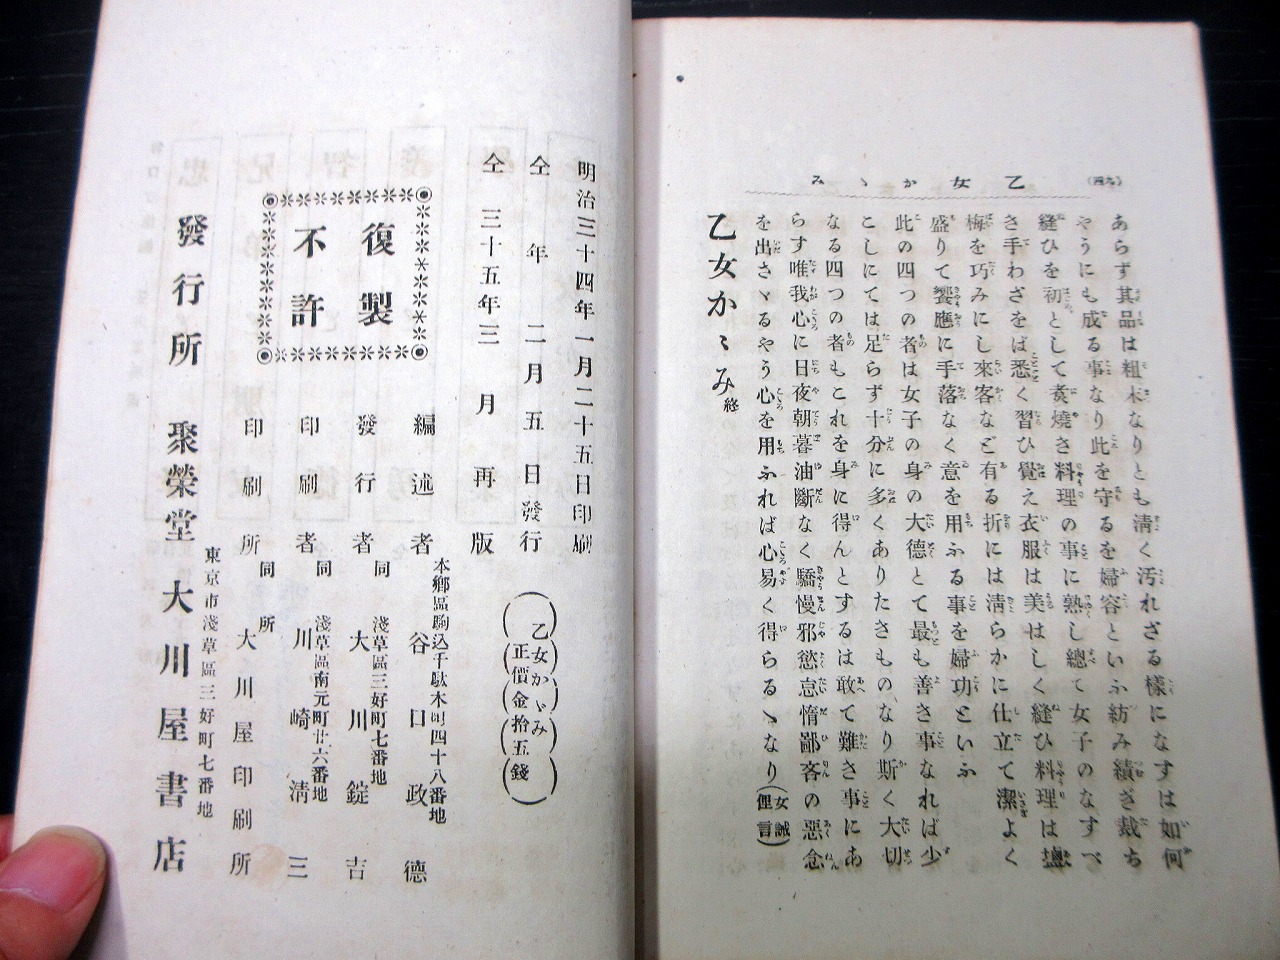 乙女かゞみ
(九四)
あらず其品は粗末なりとも淸く汚れざる樣になすは如何
やうにも成る事なり此を守るを婦容といふ紡み績ぎ裁ち
縫ひを初として煑燒き料理の事に熟し總て女子のなすべ
き手わざをば悉く習ひ覺え衣服は美はしく縫ひ料理は塩
梅を巧みにし來客など有る折には淸らかに仕立て潔よく
盛りて饗應に手落なく意を用ふる事を婦功といふ
此の四つの者は女子の身の大德とて最も善き事なれば少
こしにては足らず十分に多くありたきものなり斯く大切
なる四つの者もこれを身に得んとするは敢て難き事にあ
らす唯我心に日夜朝暮油斷なく驕慢邪慾怠惰鄙吝の惡念
を出さゞるやう心を用ふれば心易く得らるゝなり(女誡俚言)
乙女かゞみ終
明治三十四年一月二十五日印刷
仝年二月五日發行
仝三十五年三月再版
(乙女かゞみ)
(正價金拾五錢)
復製
不許
編述者 本鄕區駒込千駄木町四十八番地 谷口政德
發行者 同淺草區三好町七番地 大川錠吉
印刷者 同淺草區南元町廿六番地 川崎淸三
印刷所 同所 大川屋印刷所
東京市淺草區三好町七番地
發行所 聚榮堂 大川屋書店